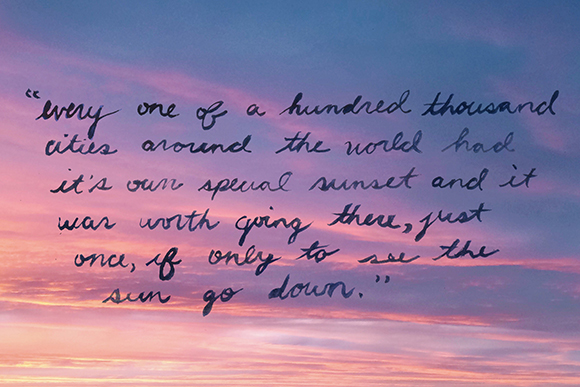 "every one of a hundred thousand
cities around the world had
it's own special sunset and it
was worth going there, just
once, if only to see the
sun go down."